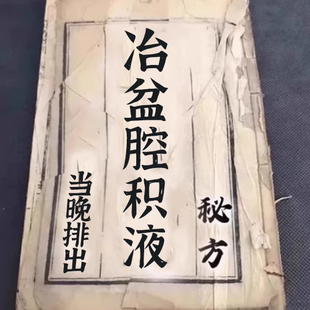 秘方
冶盆腔积液
当晚排出